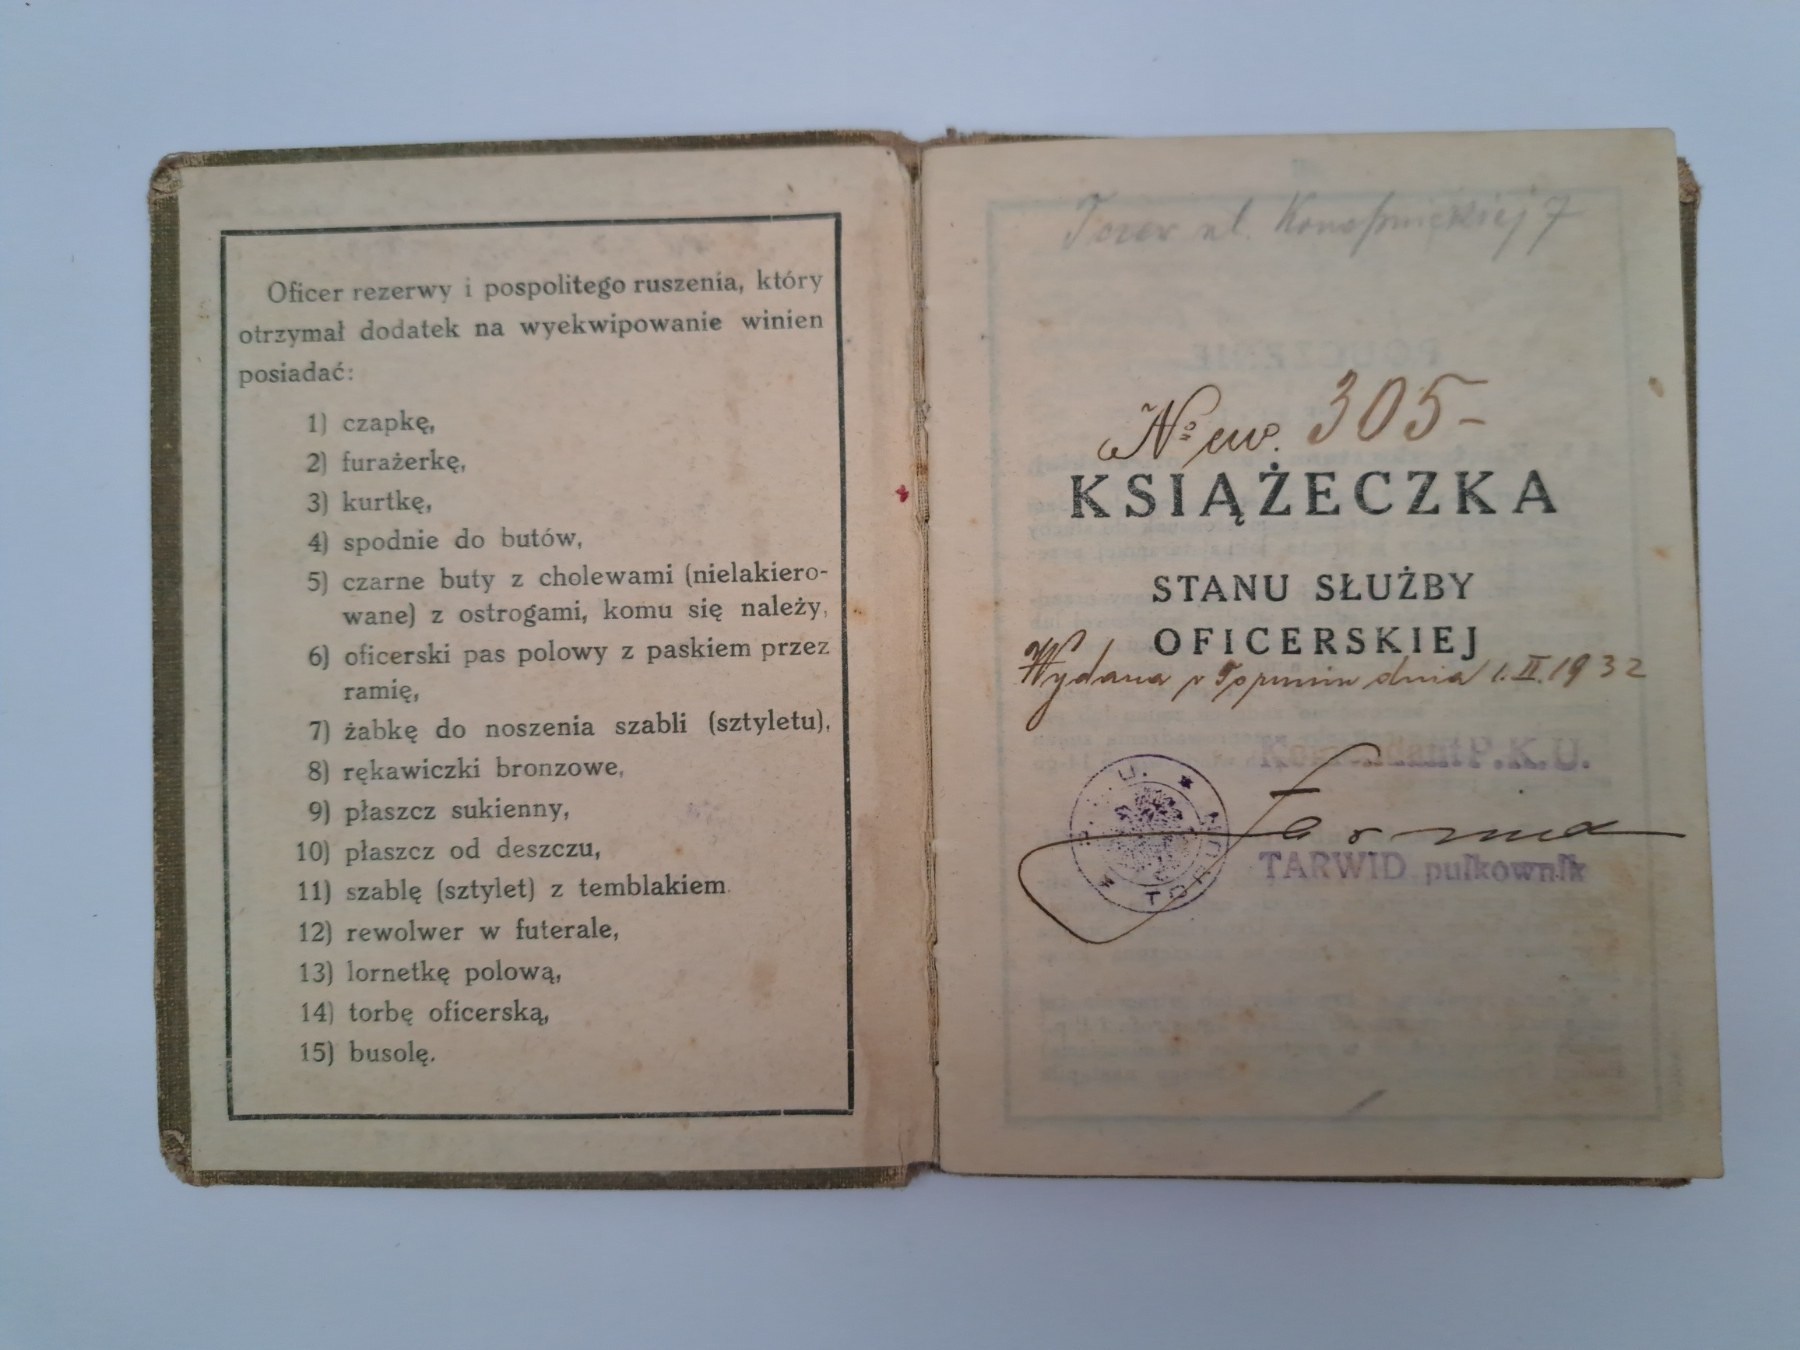 Oficer rezerwy i pospolitego ruszenia, który
otrzymał dodatek na wyekwipowanie winien
posiadać:
1) czapkę,
2) furażerkę,
3) kurtkę,
4) spodnie do butów,
5) czarne buty z cholewami (nielakiero-
wane) z ostrogami, komu się należy,
6) oficerski pas polowy z paskiem przez
ramię,
7) żabkę do noszenia szabli (sztyletu),
8) rękawiczki bronzowe,
9) płaszcz sukienny,
10) płaszcz od deszczu,
11) szablę (sztylet) z temblakiem.
12) rewolwer w futerale,
13) lornetkę polową,
14) torbę oficerską,
15) busolę.
ul. Konopnickiej 7
No ew. 305-
KSIĄŻECZKA
STANU SŁUŻBY
OFICERSKIEJ
Wydana w Toruniu dnia 1.II.1932
Komendant P.K.U.
TARWID pułkownik